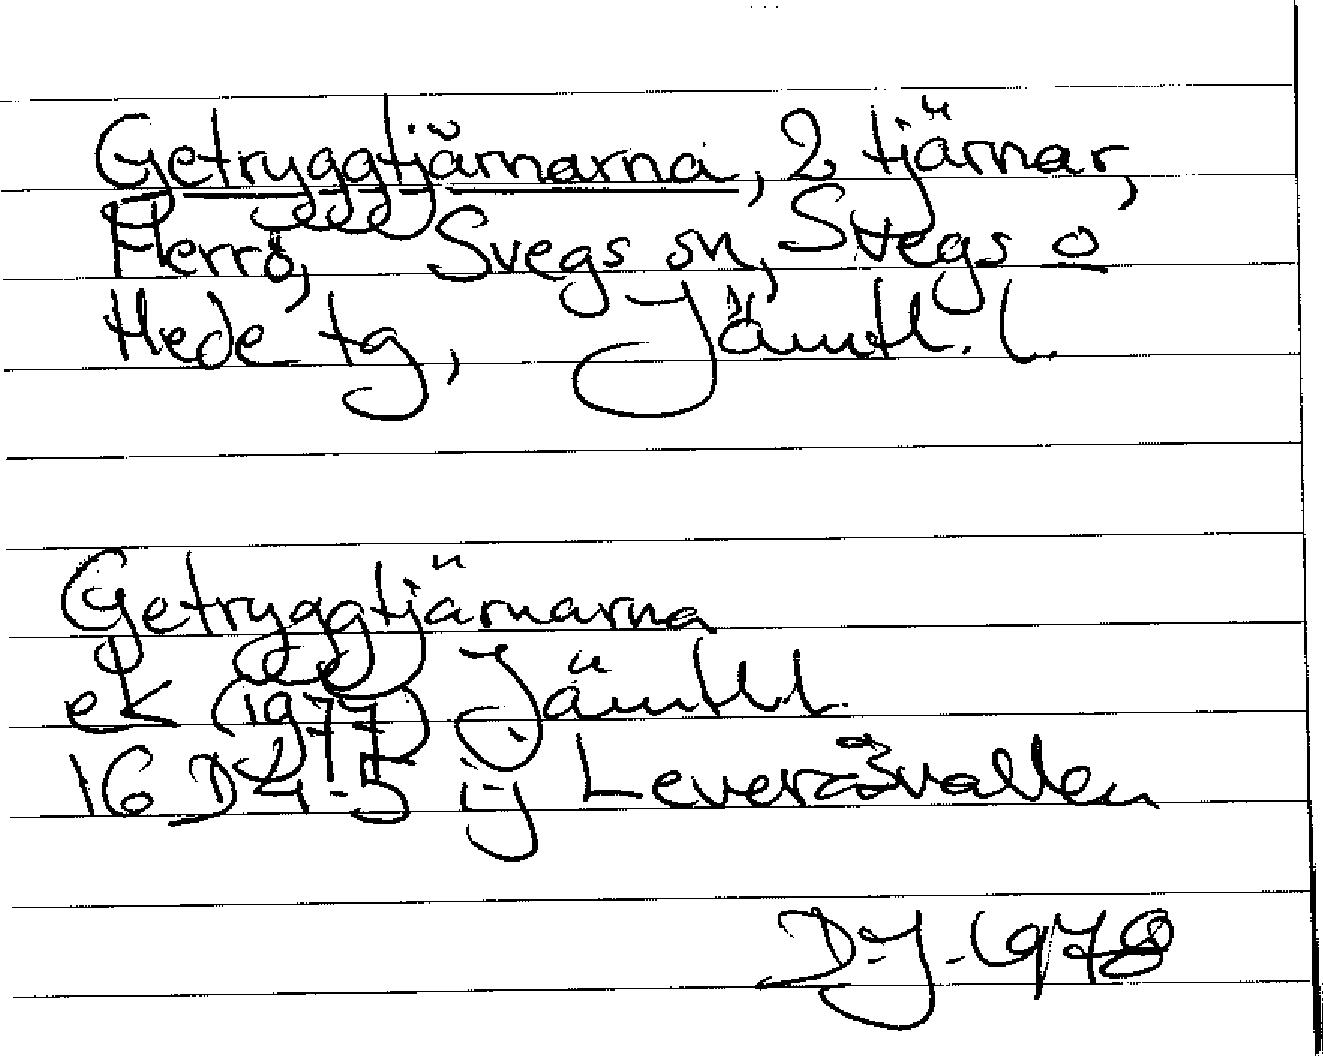 Getryggtjärnarna, 2 tjärnar,
Herrö, Svegs sn, Svegs o
Hede tg, Jämtl. l.
Getryggtjärnarna
ek (1977) Jämtl l.
16 D 4-5 i-j Leveråvallen
D-J-1978